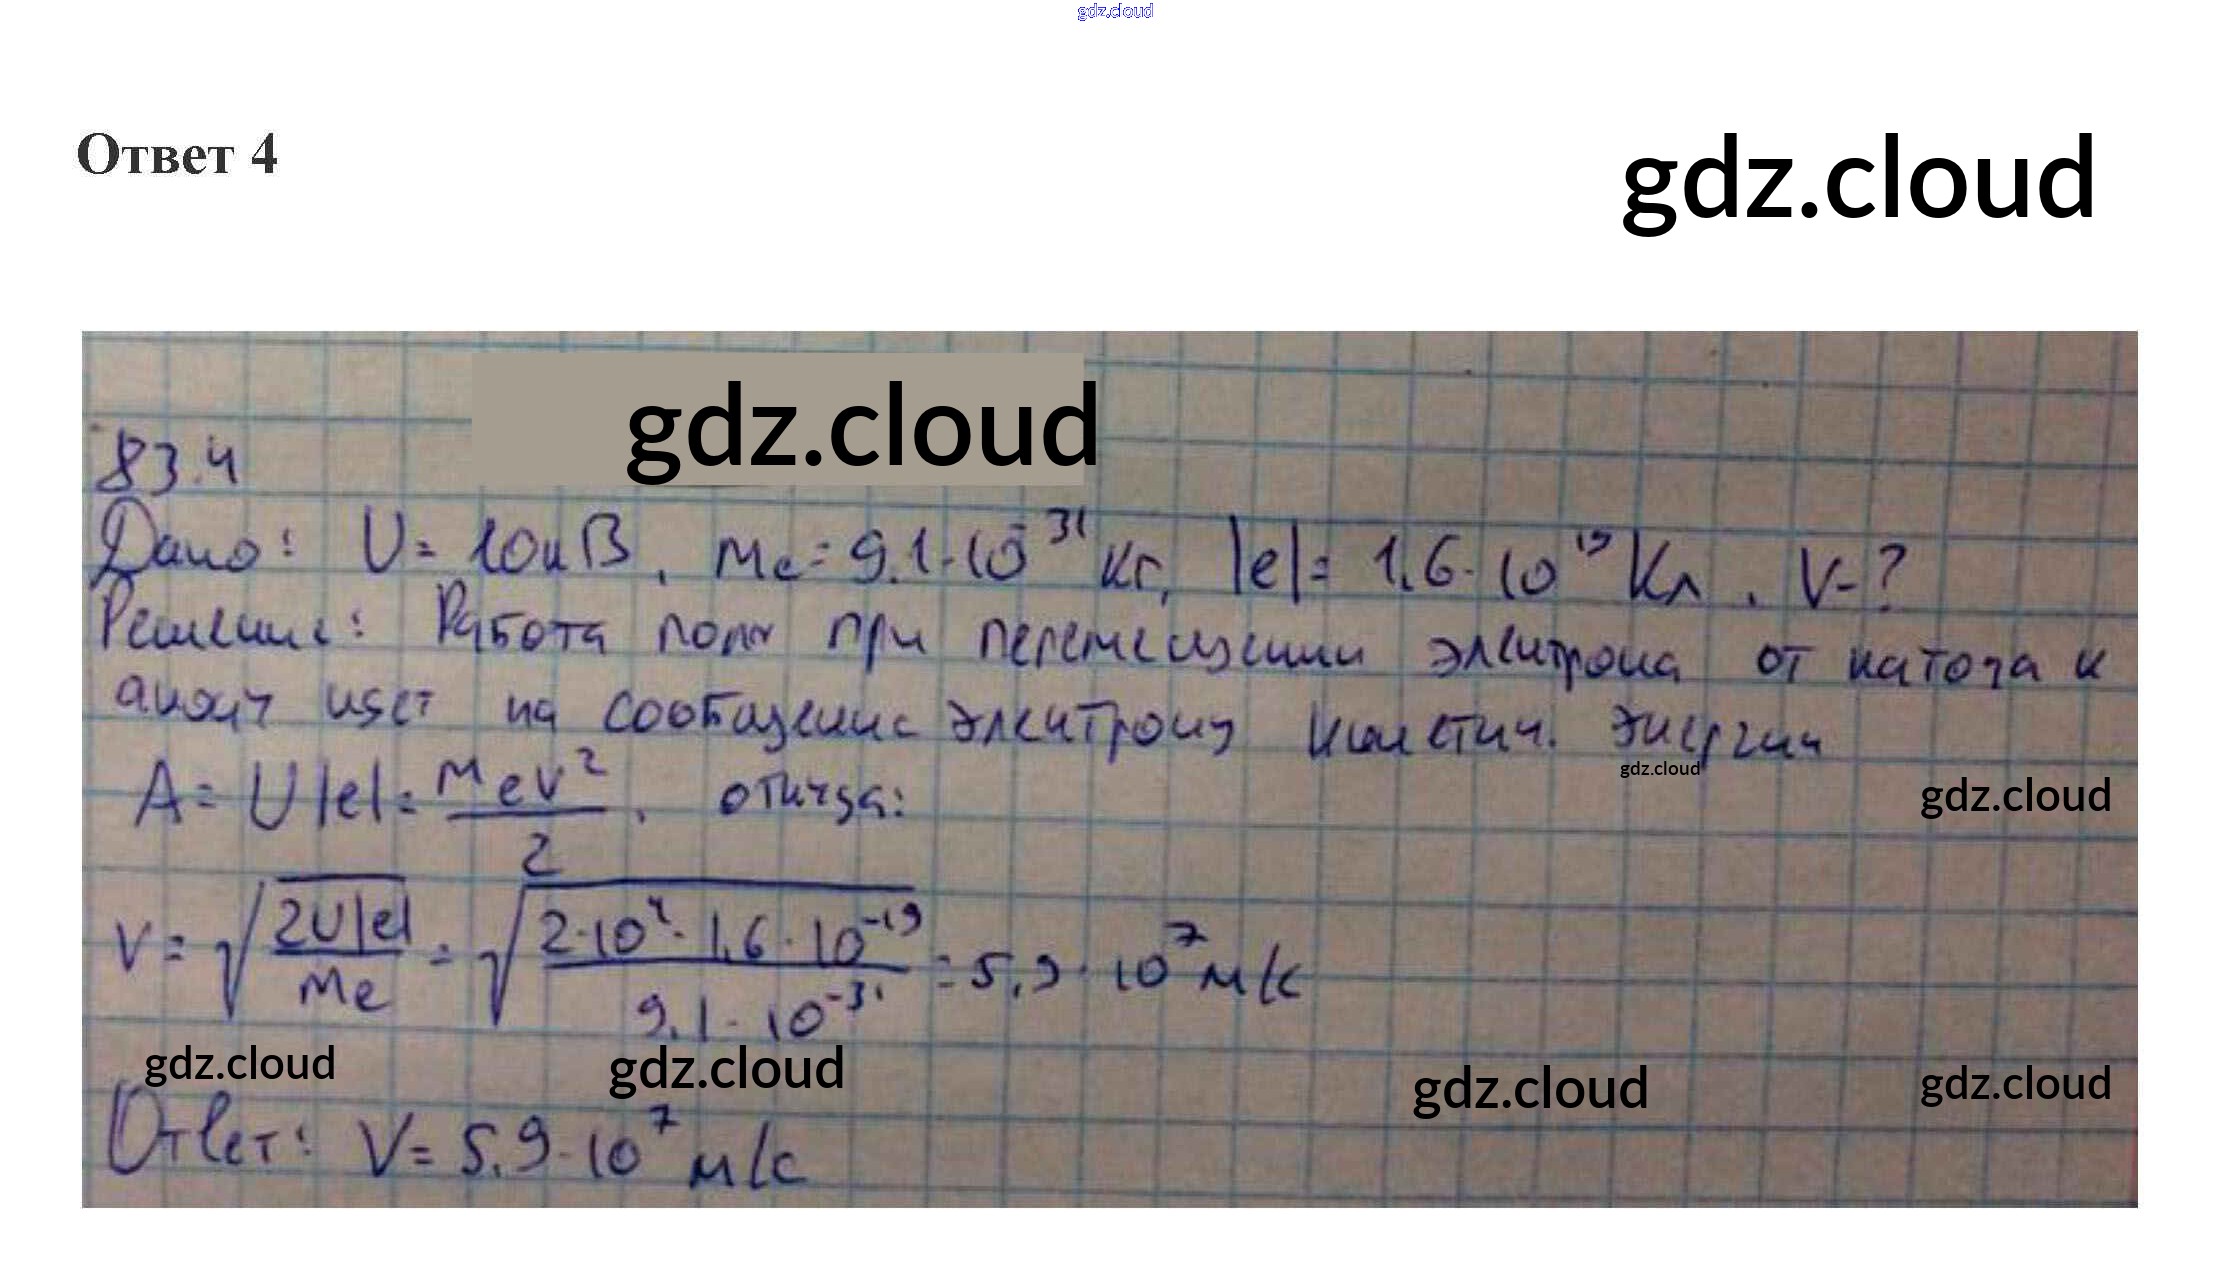 gdz.cloud
Ответ 4
gdz.cloud
gdz.cloud
83.4
Дано: U = 10кВ, me = 9.1·10^-31 кг, |e| = 1.6·10^19 Кл. V-?
Решение: Работа поля при перемещении электрона от катода к
аноду идет на сообщение электрону кинетич. энергии
gdz.cloud
A = U|e| = mev²/2. откуда:
gdz.cloud
V = √(2U|e|/me) = √(2·10⁴·1.6·10^-19/9.1·10^-31) = 5,9·10⁷ м/с
gdz.cloud gdz.cloud gdz.cloud gdz.cloud
Ответ: V = 5.9·10⁷ м/с